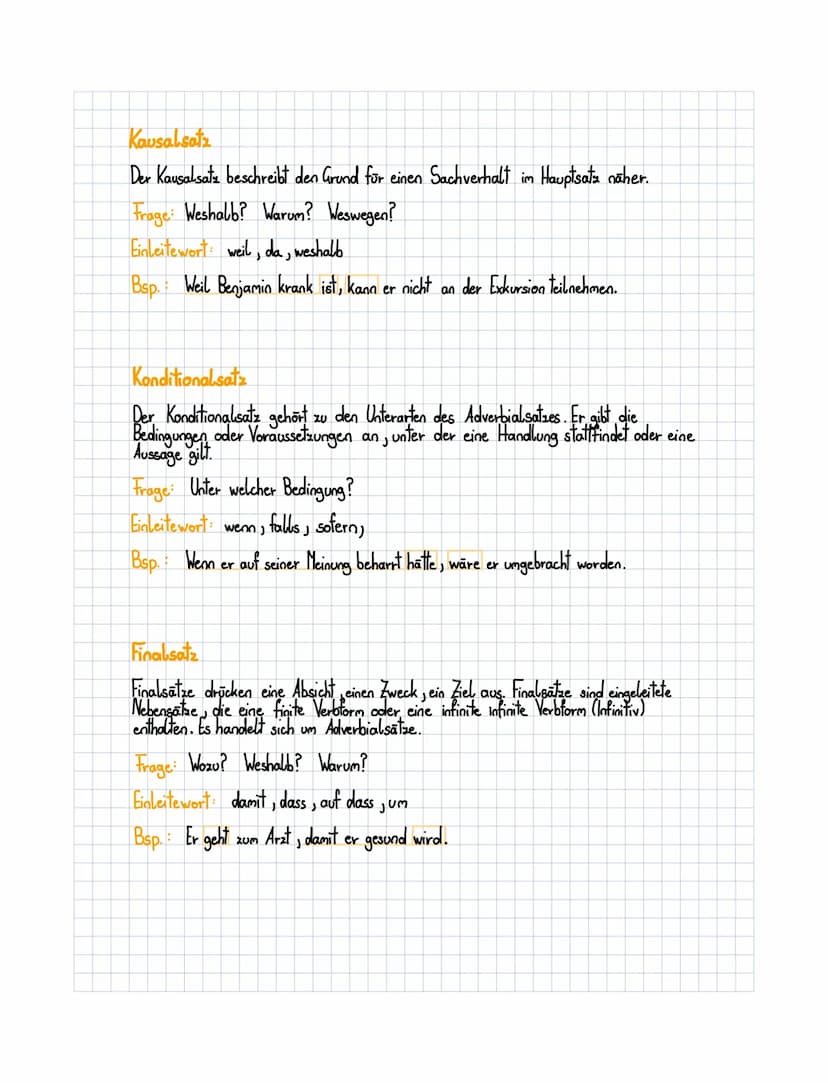 Kausalsatz
Der Kausalsatz beschreibt den Grund für einen Sachverhalt im Hauptsatz näher.
Frage: Weshalb? Warum? Weswegen?
Einleitewort: weil, da, weshalb
Bsp.: Weil Benjamin krank ist, kann er nicht an der Exkursion teilnehmen.
Konditionalsatz
Der Konditionalsatz gehört zu den Unterarten des Adverbialsatzes. Er gibt die
Bedingungen oder Voraussetzungen an, unter der eine Handlung stattfindet oder eine
Aussage gilt.
Frage: Unter welcher Bedingung?
Einleitewort: wenn, falls, sofern,
Bsp.: Wenn er auf seiner Meinung beharrt hätte, wäre er umgebracht worden.
Finalsatz
Finalsätze drücken eine Absicht, einen Zweck, ein Ziel aus. Finalsätze sind eingeleitete
Nebensätze, die eine finite Verbform oder eine infinite infinite Verbform (Infinitiv)
enthalten. Es handelt sich um Adverbialsätze.
Frage: Wozu? Weshalb? Warum?
Einleitewort: damit, dass, auf dass, um
Bsp.: Er geht zum Arzt, damit er gesund wird.